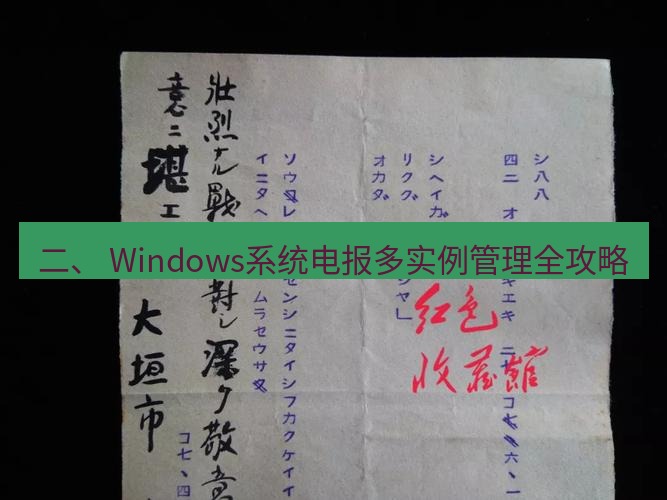 二、 Windows系统电报多实例管理全攻略
シハ八
四二 オ
キエキ 二
コ七、
六、一
シヘイガ
リクグ
シヤ」
オカダ
红色
收藏館
センシニタイシフカクケイイ
イニタヘ
ムラセウサ
壮烈ナル戦
對シ深ク敬意
意ニ堪エ
大垣市
コ七、四